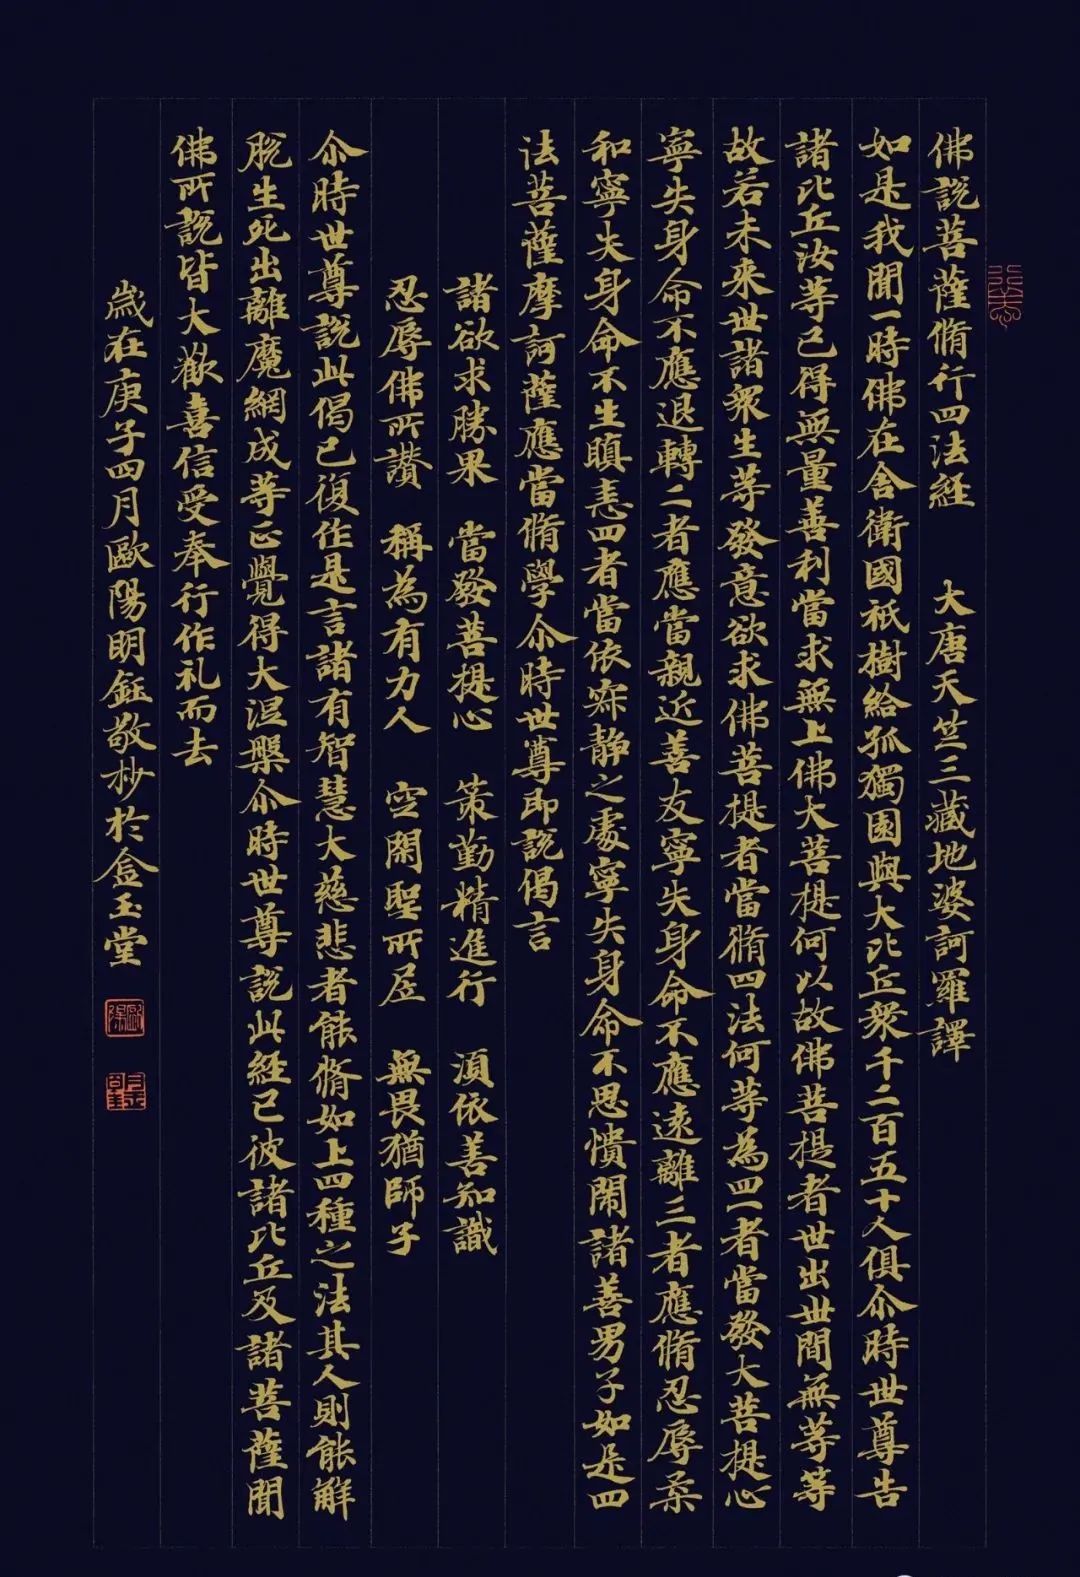 佛說菩薩脩行四法經 大唐天竺三藏地婆訶羅譯
如是我聞一時佛在舍衛國祇樹給孤獨園與大比丘衆千二百五十人俱尒時世尊告
諸比丘汝等已得無量善利當求無上佛大菩提何以故佛菩提者世出世間無等等
故若未来世諸衆生等發意欲求佛菩提者當脩四法何等為四一者當發大菩提心
寧失身命不應退轉二者應當親近善友寧失身命不應遠離三者應脩忍辱柔
和寧失身命不生瞋恚四者當依寂静之處寧失身命不思憒閙諸善男子如是四
法菩薩摩訶薩應當脩學尒時世尊即說偈言
諸欲求勝果 當發菩提心 策勤精進行 須依善知識
忍辱佛所讚 稱為有力人 空閑聖所居 無畏猶師子
尒時世尊說此偈已復作是言諸有智慧大慈悲者能脩如上四種之法其人則能解
脫生死出離魔網成等正覺得大涅槃尒時世尊說此經已彼諸比丘及諸菩薩聞
佛所說皆大歡喜信受奉行作礼而去
歲在庚子四月歐陽明鈺敬抄於盒玉堂